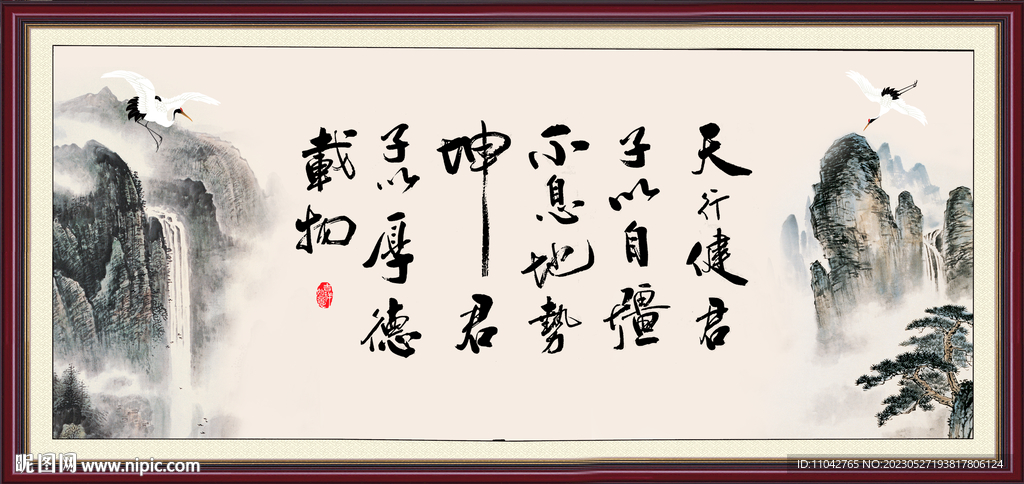 天行健君
子以自疆
不息地勢
坤君
子以厚德
載物
昵图网 www.nipic.com
ID:11042765 NO:20230527193817806124